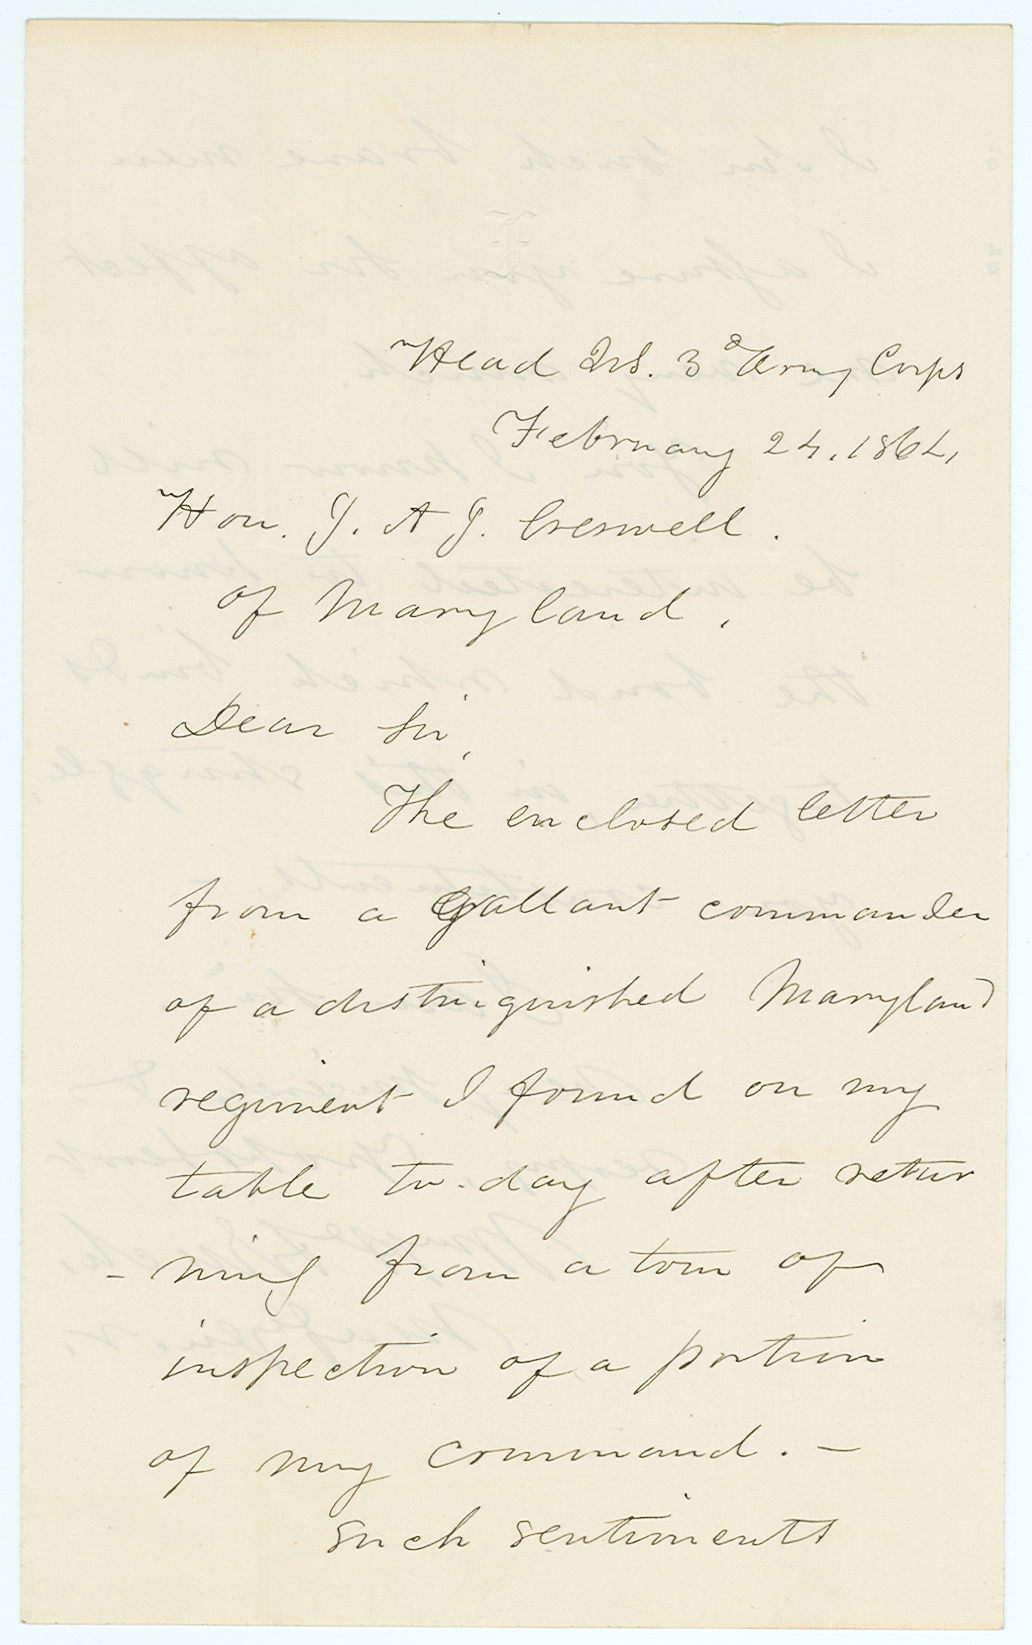 Head Qrs. 3d Army Corps
February 24, 1864,
Hon. J. A J. Creswell.
of Maryland,
Dear Sir,
The enclosed letter
from a Gallant commander
of a distinguished Maryland
regiment I found on my
table to-day after retur
- ning from a tour of
inspection of a portion
of my command. —
such sentiments